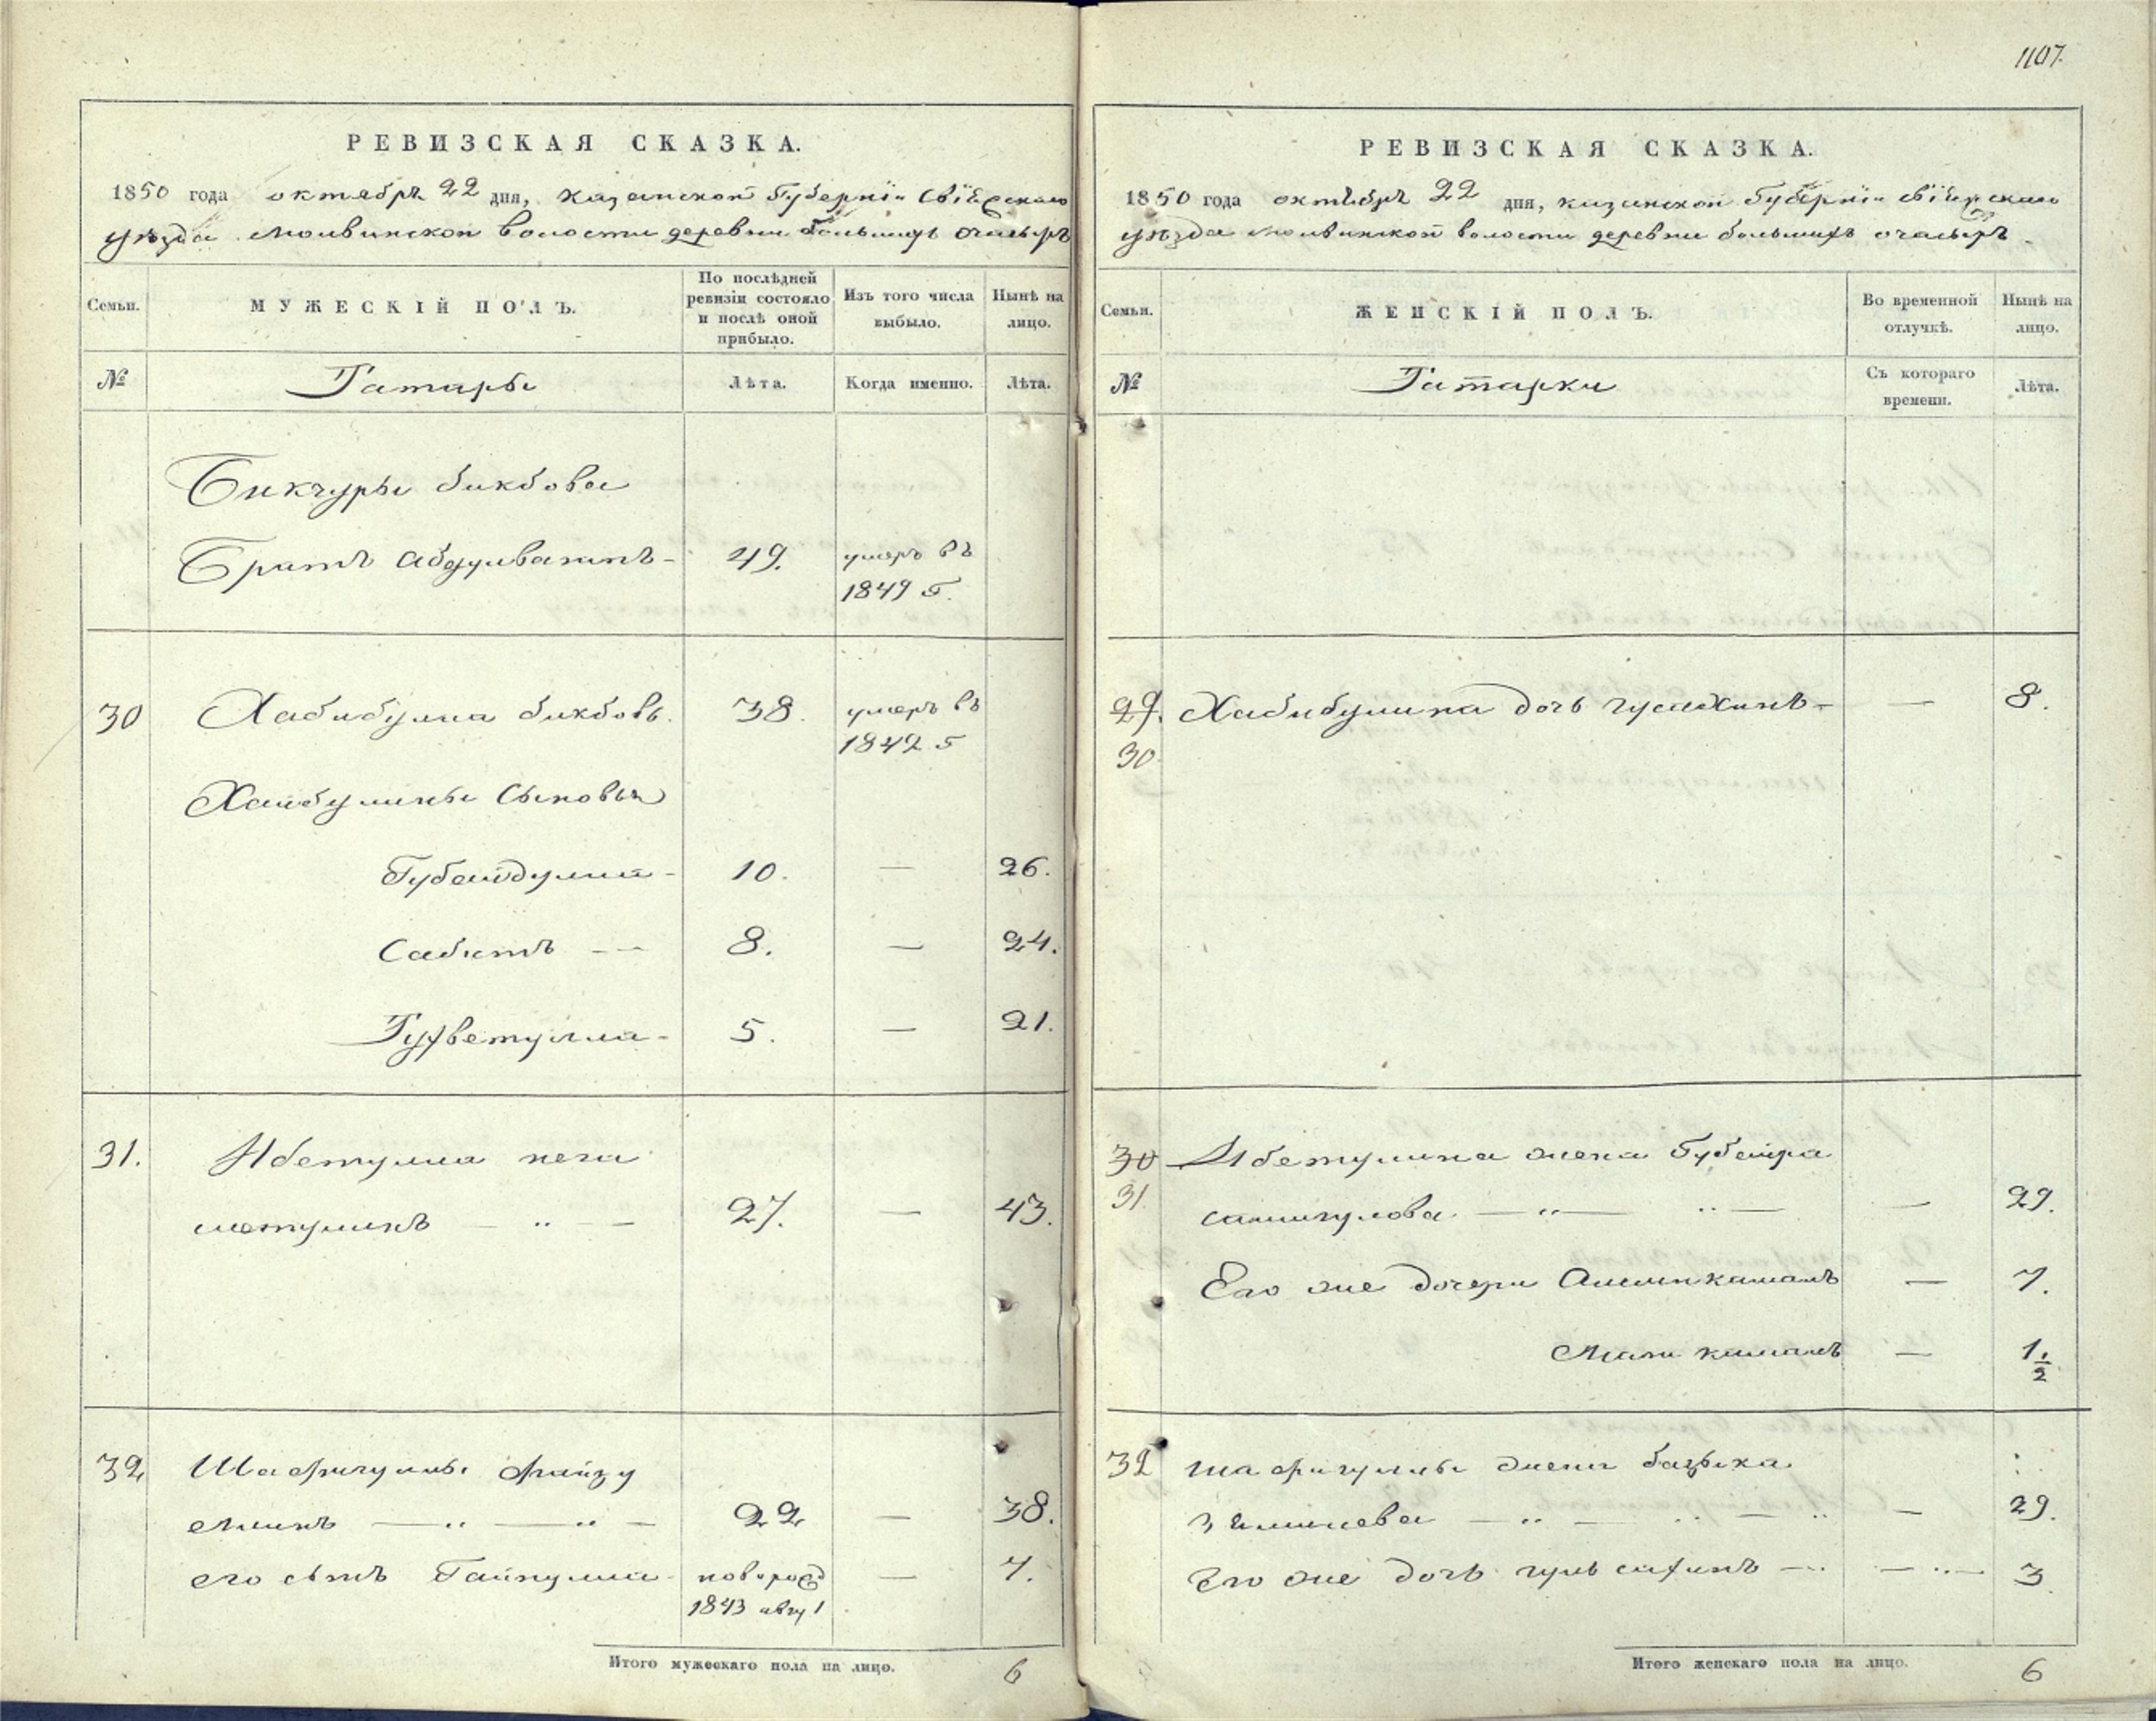 1107.
РЕВИЗСКАЯ СКАЗКА.
1850 года октябрь 22 дня, казанской Губернiи Свiяжскаго
уѣзда Молвинской волости деревни большихъ очасыръ
Семьи.
МУЖЕСКІЙ ПОЛЪ.
По послѣдней
ревизіи состояло
и послѣ оной
прибыло.
Изъ того числа
выбыло.
Нынѣ на
лицо.
№
Татары
Лѣта.
Когда именно.
Лѣта.
Бикчуры бикбова
Братъ Абдулватипъ - 49. умеръ въ
1849 г.
30 Хабибулла бикбовъ. 38. умеръ въ
1842 г
Хабибуллины сыновья
Губайдулла - 10. — 26.
Сабитъ — 8. — 24.
5. — 21.
31. Ибетулла
27. — 43.
32 Шафигуллы файзу
22 — 38.
его сынъ Гайнулла новорожд — 7.
1843 авгу 1
Итого мужескаго пола на лицо. 6
РЕВИЗСКАЯ СКАЗКА.
1850 года октябрь 22 дня, казанской Губернiи Свiяжскаго
уѣзда Молвинской волости деревни большихъ очасыръ
Семьи.
ЖЕНСКІЙ ПОЛЪ.
Во временной
отлучкѣ.
Нынѣ на
лицо.
№
Татарки
Съ котораго
времени.
Лѣта.
29. Хабибуллина дочь — 8.
30
30 Ибетуллина жена Губейра
31. — 29.
Его же дочери — 7.
— 1 1/2
32 шафигуллы жена
— 29.
Его же дочь — 3
Итого женскаго пола на лицо. 6